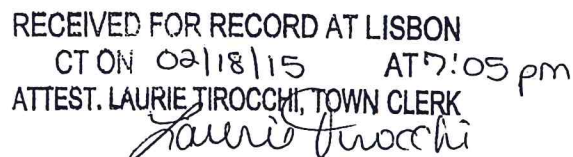 RECEIVED FOR RECORD AT LISBON
CT ON 02/18/15 AT 7:05 pm
ATTEST. LAURIE TIROCCHI, TOWN CLERK
Laurie Tirocchi